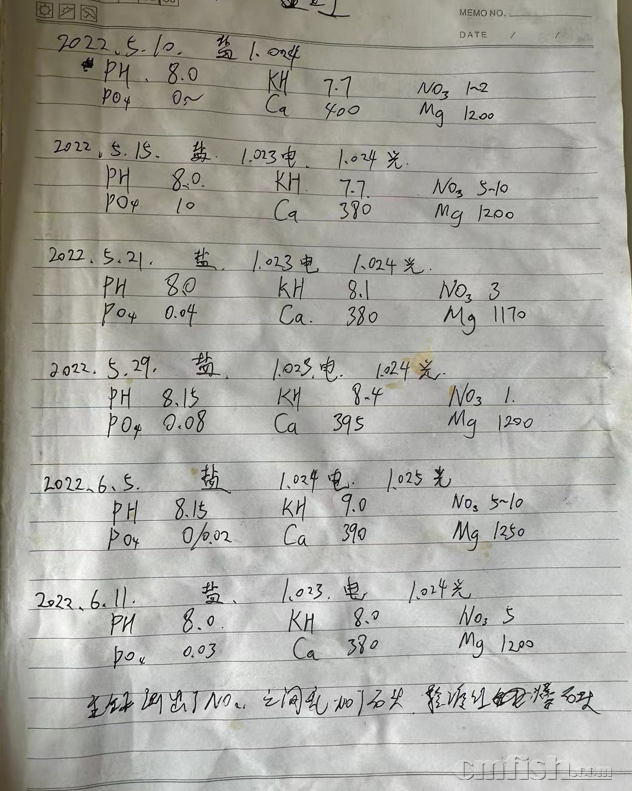 MEMO NO.
DATE / /
2022.5.10. 盐 1.024
PH. 8.0 KH 7.7 NO3 1~2
PO4 0~ Ca 400 Mg 1200
2022.5.15. 盐. 1.023电. 1.024光.
PH 8.0. KH 7.7. NO3 5~10
PO4 10 Ca 380 Mg 1200
2022.5.21. 盐. 1.023电 1.024光.
PH 8.0 KH 8.1 NO3 3
PO4 0.04 Ca. 380 Mg 1170
2022.5.29. 盐. 1.023.电. 1.024光.
PH 8.15 KH 8.4 NO3 1.
PO4 0.08 Ca 395 Mg 1200
2022.6.5. 盐 1.024电. 1.025光
PH 8.15 KH 9.0 NO3 5~10
PO4 0/0.02 Ca 390 Mg 1250
2022.6.11. 盐. 1.023.电 1.024光
PH 8.0. KH 8.0 NO3 5
PO4 0.03 Ca 380 Mg 1200
测出了NO 之间 加了石头
cmfish.com